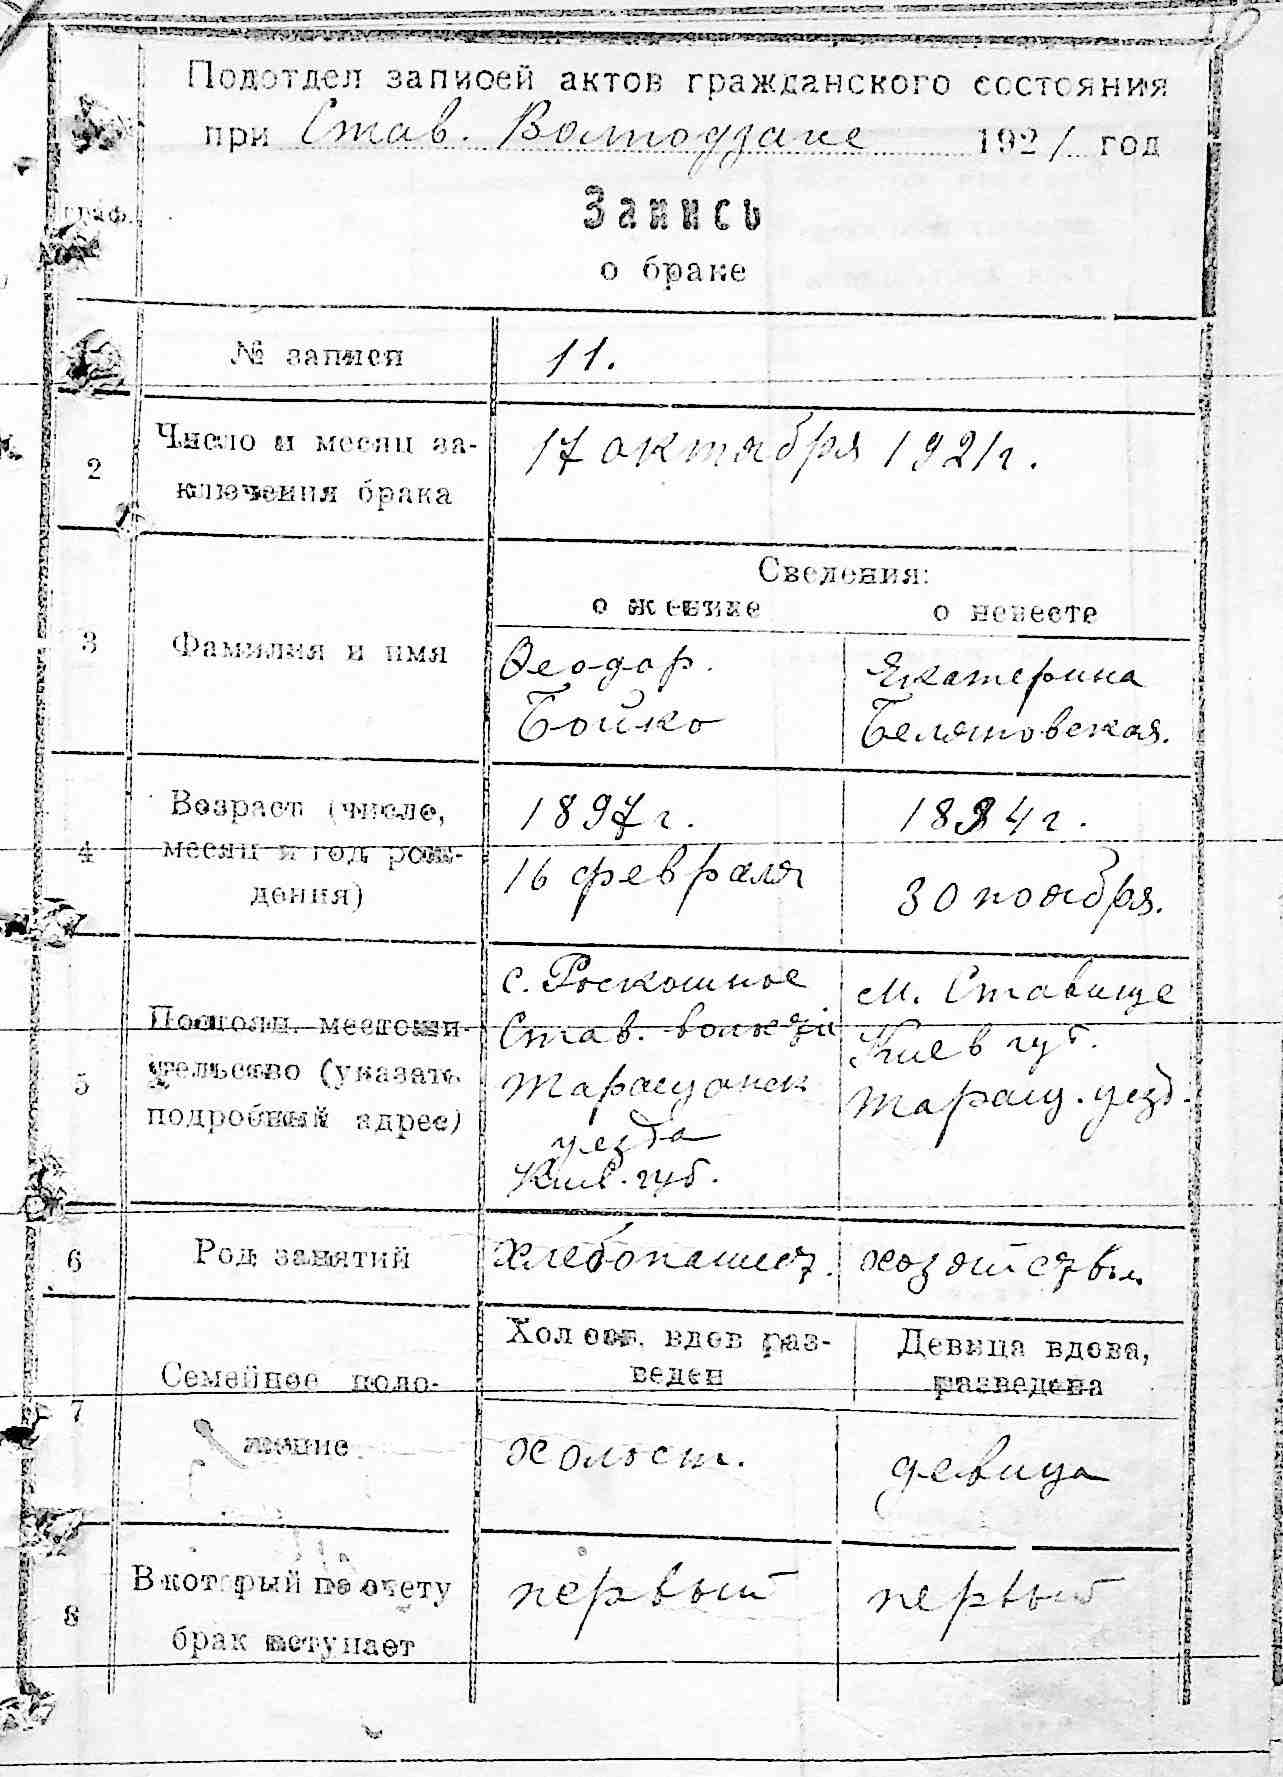 Подотдел записей актов гражданского состояния
при Став. Волподзаге 1921 год
граф.
Запись
о браке
№ записи
11.
2
Число и месяц за-
ключения брака
17 октября 1921 г.
3
Фамилия и имя
Сведения:
о женихе
о невесте
Феодор.
Бойко
Екатерина
Белятовская.
4
Возраст (число,
месяц и год рож-
дения)
1897 г.
16 февраля
г.
30 ноября.
5
Постоян. местожи-
тельство (указать
подробный адрес)
с. Роскошное
Став.
Таращанск
уезда
Киев. губ.
м. Ставище
Киев губ.
Таращ. уезд.
6
Род занятий
хлебопашец.
7
Семейное поло-
жение
Холост, вдов раз-
веден
Девица вдова,
разведена
холост.
девица
8
В который по счету
брак вступает
первый
первый